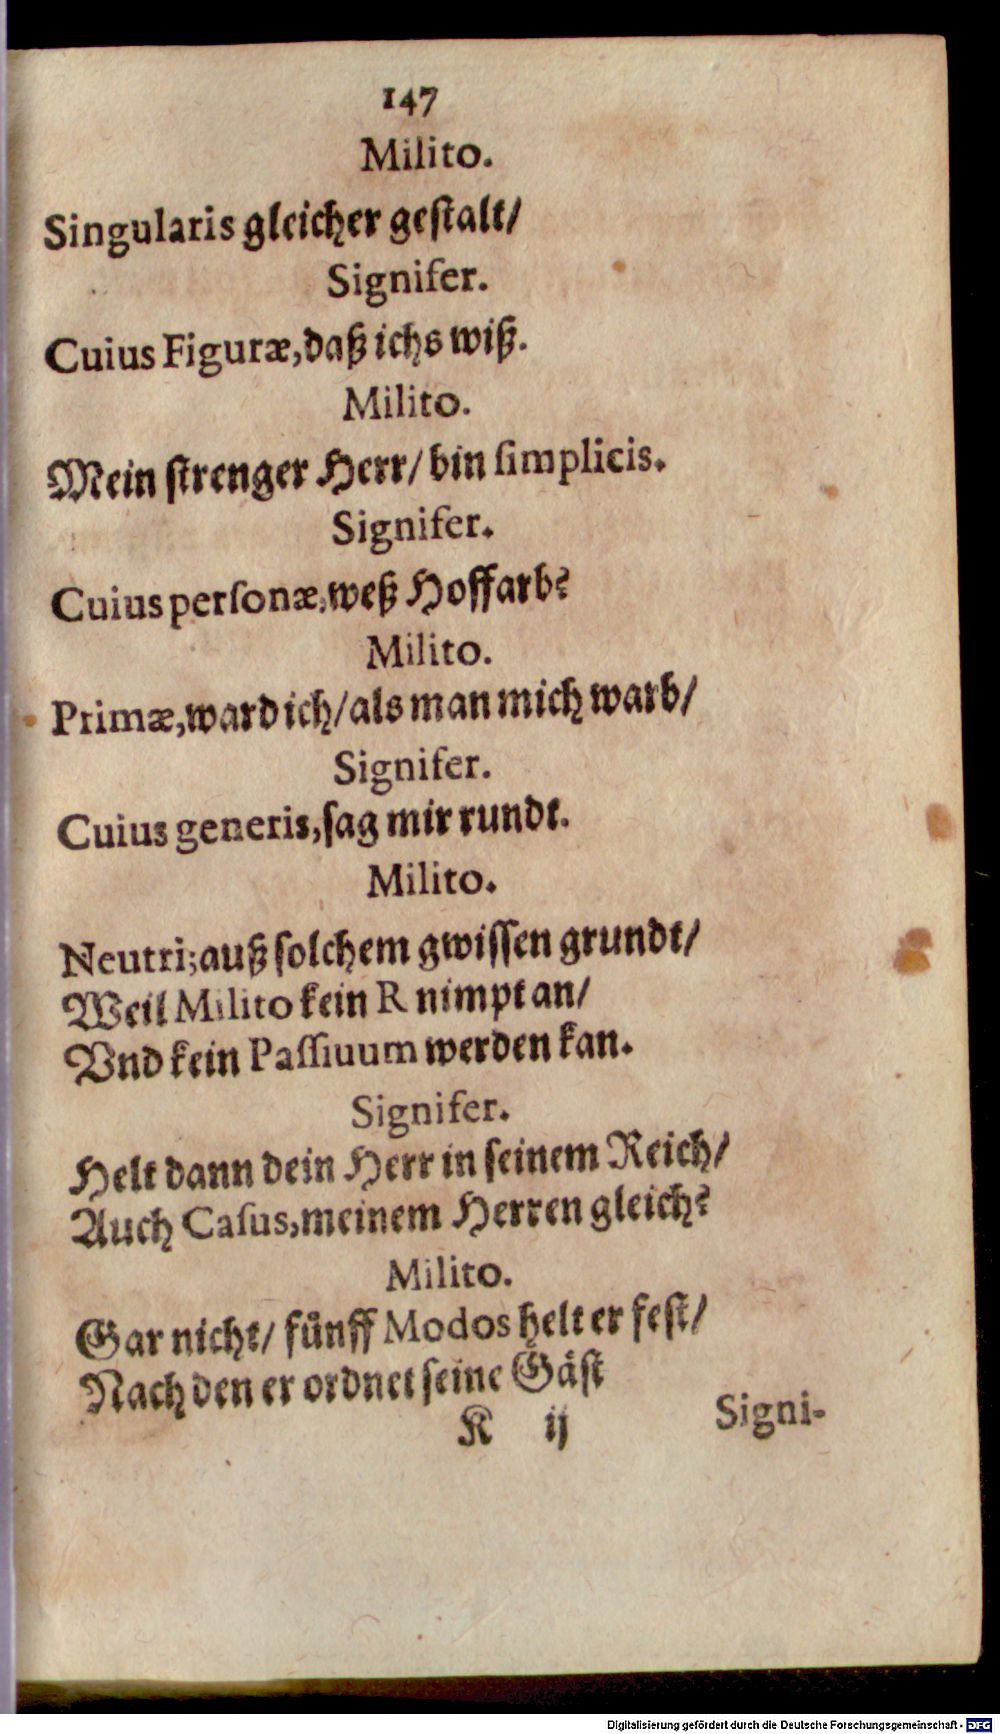 147
Milito.
Singularis gleicher gestalt/
Signifer.
Cuius Figuræ, daß ichs wiß.
Milito.
Mein strenger Herr/ bin simplicis.
Signifer.
Cuius personæ, weß Hoffarb?
Milito.
Primæ, ward ich/ als man mich warb/
Signifer.
Cuius generis, sag mir rundt.
Milito.
Neutri; auß solchem gwissen grundt/
Weil Milito kein R nimpt an/
Vnd kein Passiuum werden kan.
Signifer.
Helt dann dein Herr in seinem Reich/
Auch Casus, meinem Herren gleich?
Milito.
Gar nicht/ fünff Modos helt er fest/
Nach den er ordnet seine Gäst
K ij
Signi-
Digitalisierung gefördert durch die Deutsche Forschungsgemeinschaft - DFG